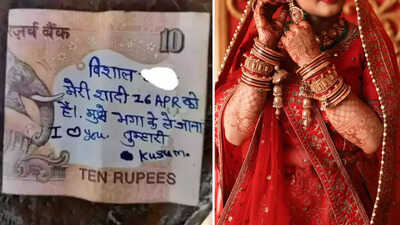 रज़र्व बैंक
10
विशाल
मेरी शादी 26 APR को
है।. मुझे भगा के ले जाना
I ♡ you तुम्हारी
Kusum.
TEN RUPEES